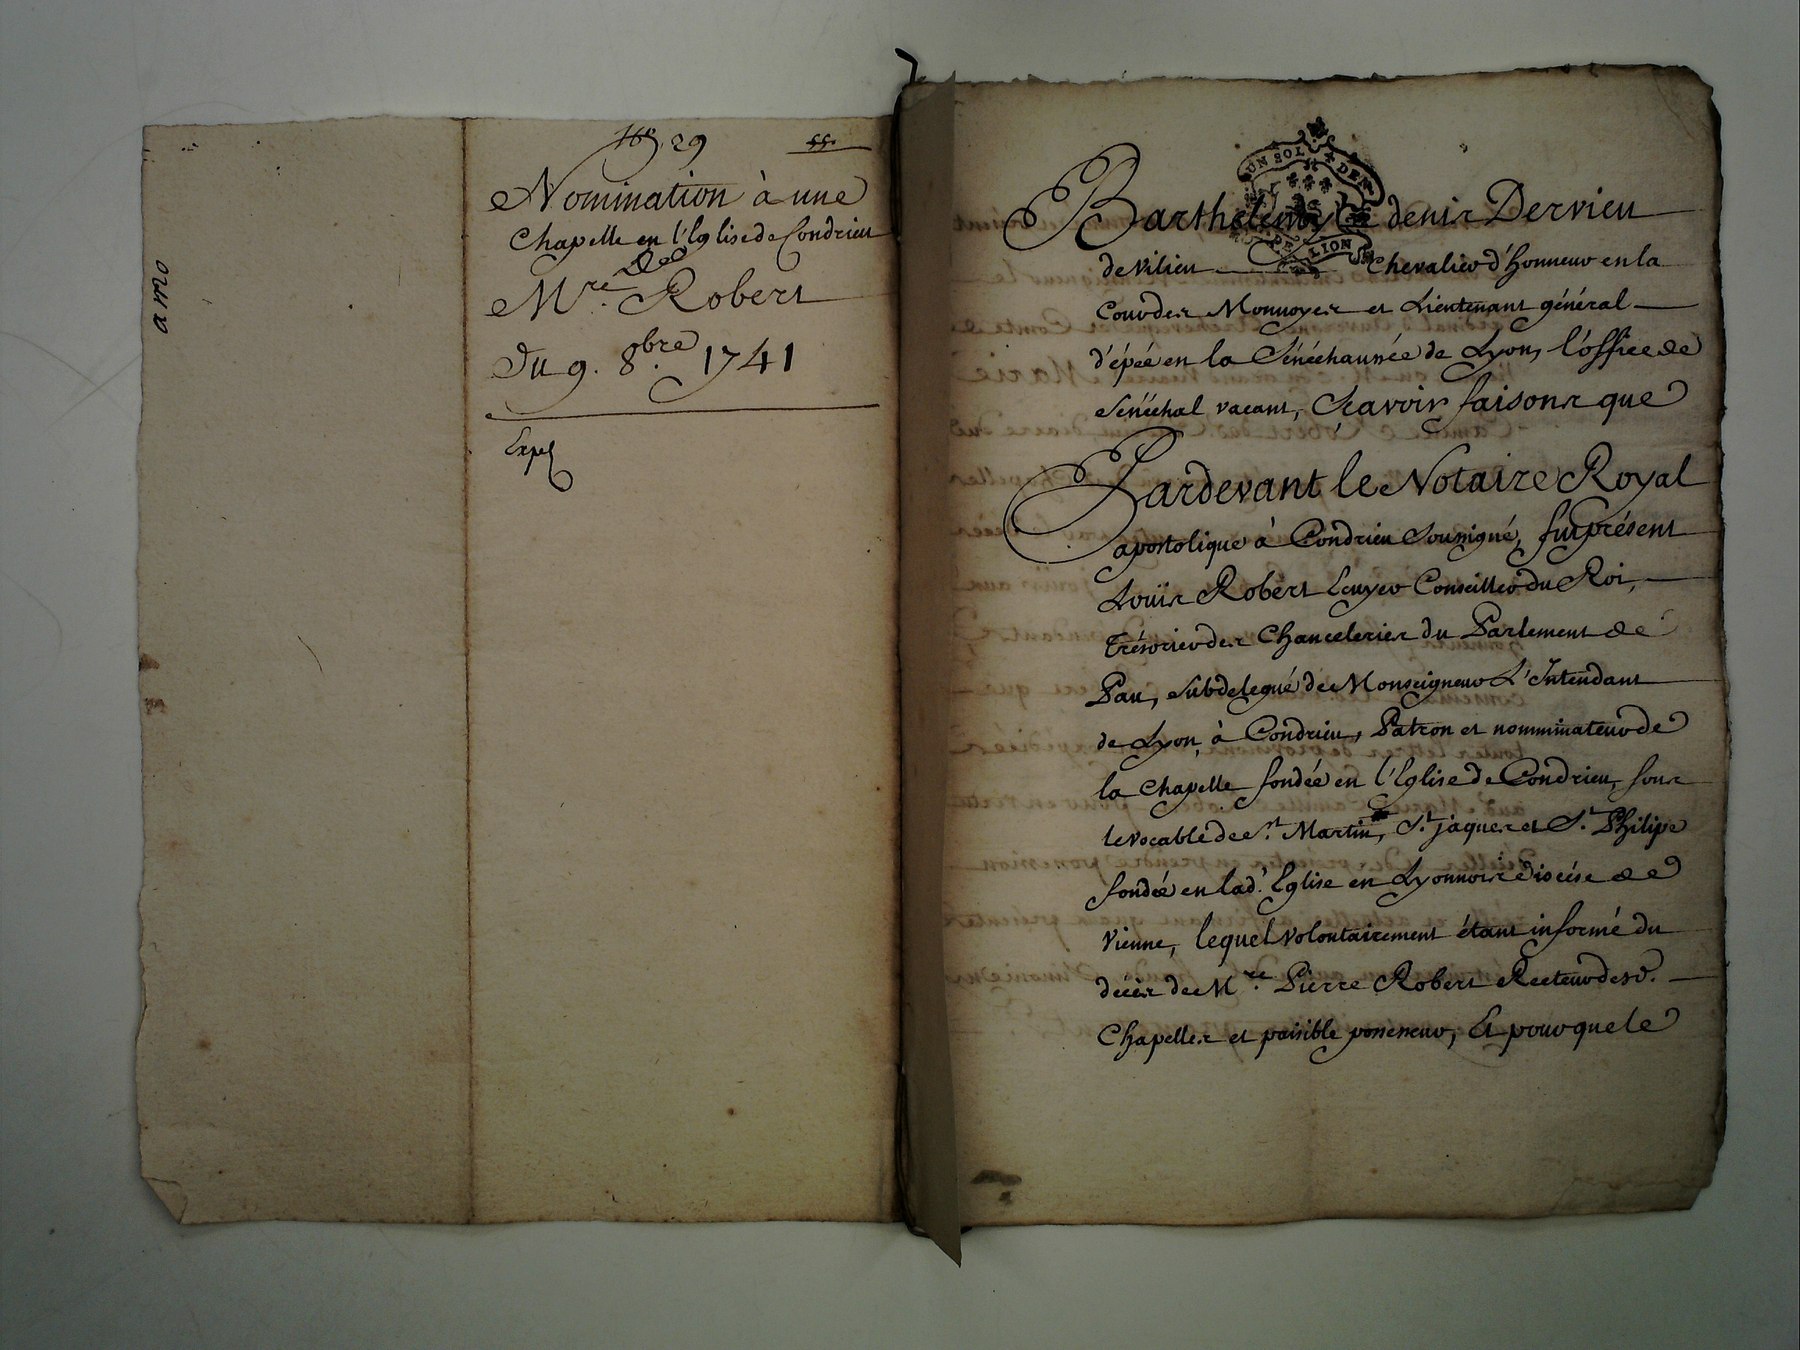 amo
165. 29 55.
Nomination à une
Chapelle en l'Eglise de Condrieu
De
Mre. Robert
Du 9. 8bre. 1741
Expé
UN SOL 4 DEN
DE LION
Barthelemy denis Dervieu
de Vilieu Chevalier d'honneur en la
Cour des Monnoyes et Lieutenant général
d'épée en la Sénéchaussée de Lyon, l'office de
Sénéchal vacant, Scavoir faisons que
Pardevant le Notaire Royal
apostolique à Condrieu Soussigné, fut présent
Louis Robert Ecuyer Conseiller du Roi,
Trésorier des Chanceleries du Parlement de
Pau, Subdelegué de Monseigneur L'Intendant
de Lyon, à Condrieu, Patron et nomminateur de
la Chapelle fondée en l'Eglise de Condrieu, sous
le vocable de St. Martin, St. jaques et St. Philipe
fondée en lad. Eglise en Lyonnois diocése de
Vienne, lequel volontairement étant informé du
décès de Mre. Pierre Robert Recteur desd.
Chapelles et paisible possesseur, Et pour que le